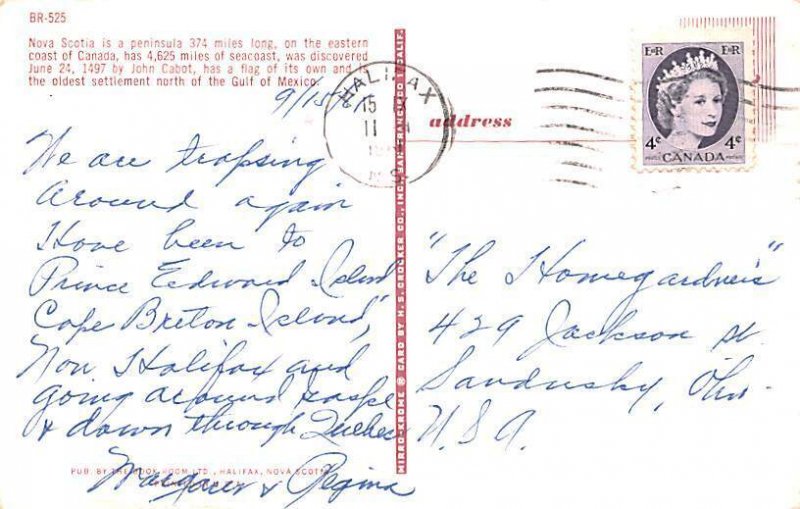 BR-525
Nova Scotia is a peninsula 374 miles long, on the eastern
coast of Canada, has 4,625 miles of seacoast, was discovered
June 24, 1497 by John Cabot, has a flag of its own and is
the oldest settlement north of the Gulf of Mexico.
9/15
We are trapsing
around again
Have been to
Prince Eedward Island
Cape Breton Island",
Non Halifax and
going around Gaspe
& down through Quebec
Margaret & Regina
PUB. BY THE BOOK ROOM LTD., HALIFAX, NOVA SCOTIA
MIRRO-KROME ® CARD BY H. S. CROCKER CO., INC. SAN FRANCISCO 1, CALIF.
HALIFAX
15
11
address
E II R E II R
4¢ 4¢
POSTES POSTAGE
CANADA
"The Homegardner's"
429 Jackson St.
Sandusky, Ohio.
U.S.A.